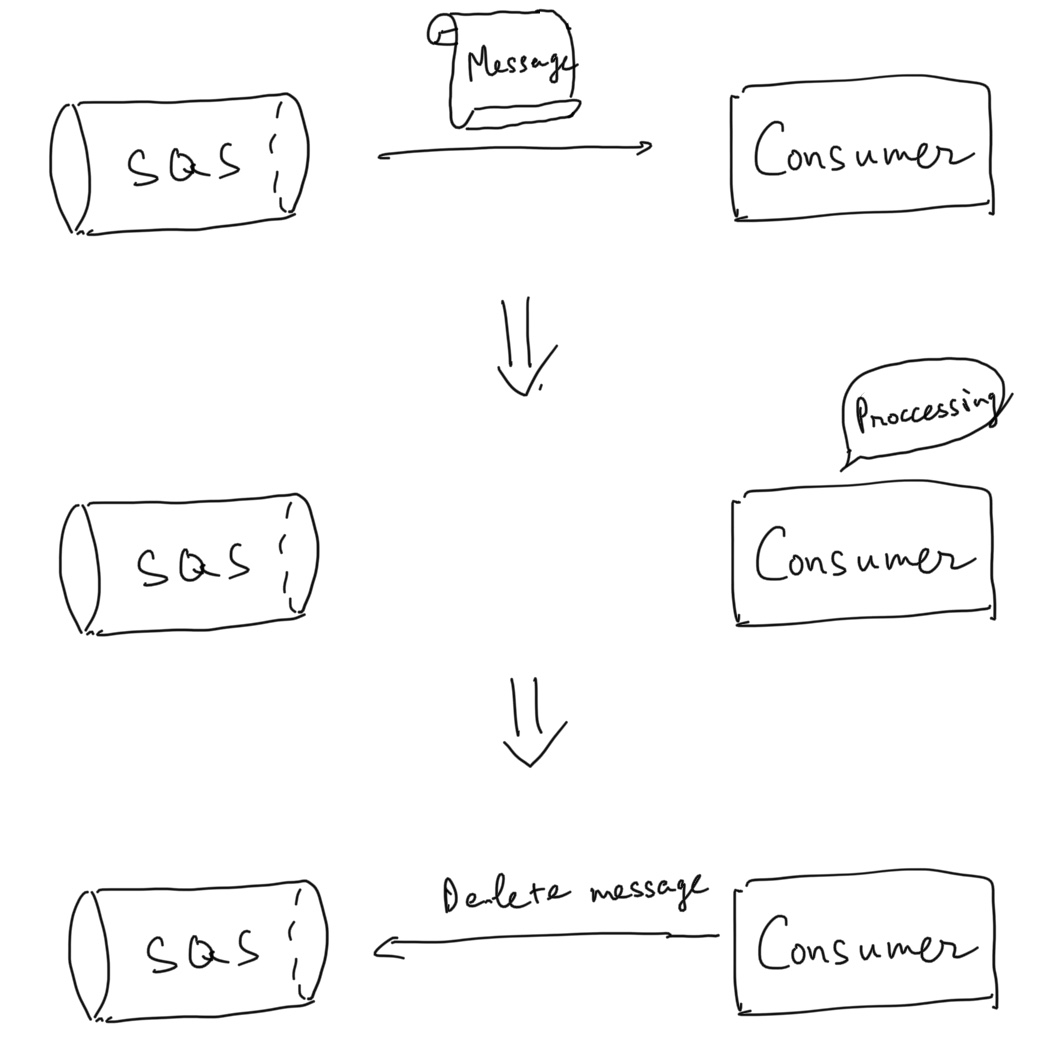 Message
SQS
Consumer
Proccessing
SQS
Consumer
Delete message
SQS
Consumer